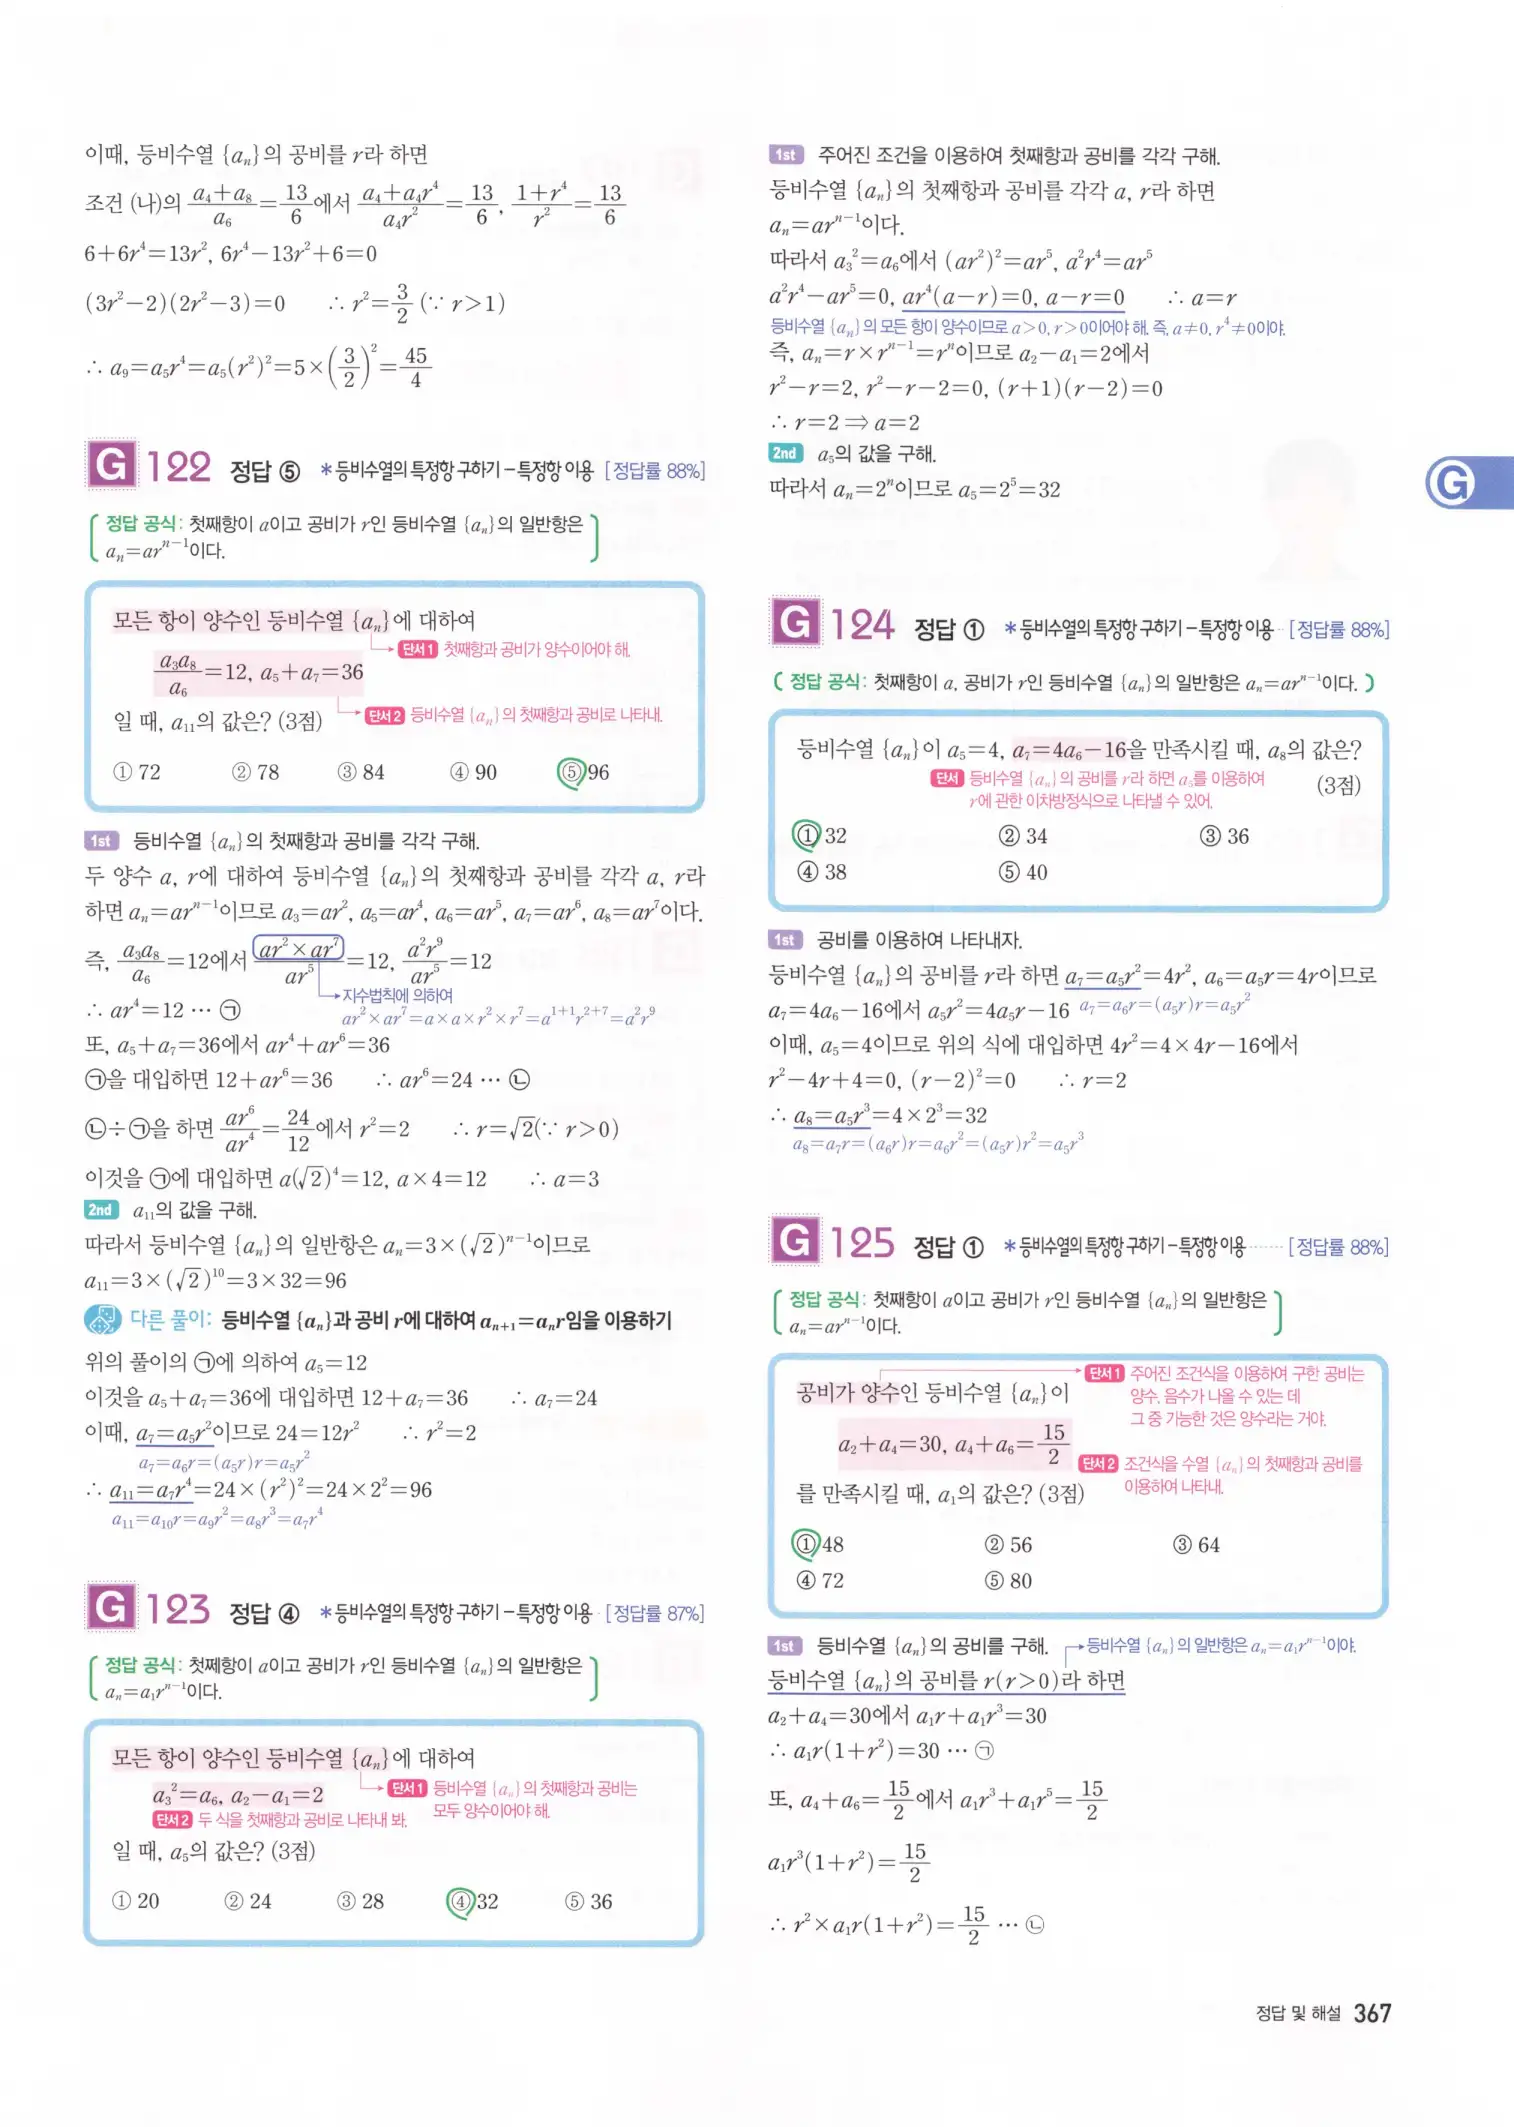 이때, 등비수열 {aₙ}의 공비를 r라 하면
조건 (나)의 (a₄+a₈)/a₆=13/6에서 (a₄+a₄r⁴)/(a₄r²)=13/6, (1+r⁴)/r²=13/6
6+6r⁴=13r², 6r⁴-13r²+6=0
(3r²-2)(2r²-3)=0 ∴ r²=3/2 (∵ r>1)
∴ a₉=a₅r⁴=a₅(r²)²=5×(3/2)²=45/4
G 122 정답 ⑤ *등비수열의 특정항 구하기-특정항 이용 [정답률 88%]
정답 공식: 첫째항이 a이고 공비가 r인 등비수열 {aₙ}의 일반항은
aₙ=arⁿ⁻¹이다.
모든 항이 양수인 등비수열 {aₙ}에 대하여
단서1 첫째항과 공비가 양수이어야 해.
a₃a₈/a₆=12, a₅+a₇=36
일 때, a₁₁의 값은? (3점)
단서2 등비수열 {aₙ}의 첫째항과 공비로 나타내.
① 72 ② 78 ③ 84 ④ 90 ⑤ 96
1st 등비수열 {aₙ}의 첫째항과 공비를 각각 구해.
두 양수 a, r에 대하여 등비수열 {aₙ}의 첫째항과 공비를 각각 a, r라
하면 aₙ=arⁿ⁻¹이므로 a₃=ar², a₅=ar⁴, a₆=ar⁵, a₇=ar⁶, a₈=ar⁷이다.
즉, a₃a₈/a₆=12에서 (ar²×ar⁷)/ar⁵=12, a²r⁹/ar⁵=12
지수법칙에 의하여
∴ ar⁴=12 … ㉠
ar²×ar⁷=a×a×r²×r⁷=a¹⁺¹r²⁺⁷=a²r⁹
또, a₅+a₇=36에서 ar⁴+ar⁶=36
㉠을 대입하면 12+ar⁶=36 ∴ ar⁶=24 … ㉡
㉡÷㉠을 하면 ar⁶/ar⁴=24/12에서 r²=2 ∴ r=√2(∵ r>0)
이것을 ㉠에 대입하면 a(√2)⁴=12, a×4=12 ∴ a=3
2nd a₁₁의 값을 구해.
따라서 등비수열 {aₙ}의 일반항은 aₙ=3×(√2)ⁿ⁻¹이므로
a₁₁=3×(√2)¹⁰=3×32=96
다른 풀이: 등비수열 {aₙ}과 공비 r에 대하여 aₙ₊₁=aₙr임을 이용하기
위의 풀이의 ㉠에 의하여 a₅=12
이것을 a₅+a₇=36에 대입하면 12+a₇=36 ∴ a₇=24
이때, a₇=a₅r²이므로 24=12r² ∴ r²=2
a₇=a₆r=(a₅r)r=a₅r²
∴ a₁₁=a₇r⁴=24×(r²)²=24×2²=96
a₁₁=a₁₀r=a₉r²=a₈r³=a₇r⁴
G 123 정답 ④ *등비수열의 특정항 구하기-특정항 이용 [정답률 87%]
정답 공식: 첫쩨항이 a이고 공비가 r인 등비수열 {aₙ}의 일반항은
aₙ=a₁rⁿ⁻¹이다.
모든 항이 양수인 등비수열 {aₙ}에 대하여
a₃²=a₆, a₂-a₁=2
단서1 등비수열 {aₙ}의 첫째항과 공비는
모두 양수이어야 해.
단서2 두 식을 첫째항과 공비로 나타내 봐.
일 때, a₅의 값은? (3점)
① 20 ② 24 ③ 28 ④ 32 ⑤ 36
1st 주어진 조건을 이용하여 첫째항과 공비를 각각 구해.
등비수열 {aₙ}의 첫째항과 공비를 각각 a, r라 하면
aₙ=arⁿ⁻¹이다.
따라서 a₃²=a₆에서 (ar²)²=ar⁵, a²r⁴=ar⁵
a²r⁴-ar⁵=0, ar⁴(a-r)=0, a-r=0 ∴ a=r
등비수열 {aₙ}의 모든 항이 양수이므로 a>0, r>0이어야 해. 즉, a≠0, r⁴≠0이야.
즉, aₙ=r×rⁿ⁻¹=rⁿ이므로 a₂-a₁=2에서
r²-r=2, r²-r-2=0, (r+1)(r-2)=0
∴ r=2 ⇒ a=2
2nd a₅의 값을 구해.
따라서 aₙ=2ⁿ이므로 a₅=2⁵=32
G
G 124 정답 ① *등비수열의 특정항 구하기-특정항 이용 [정답률 88%]
정답 공식: 첫째항이 a, 공비가 r인 등비수열 {aₙ}의 일반항은 aₙ=arⁿ⁻¹이다.
등비수열 {aₙ}이 a₅=4, a₇=4a₆-16을 만족시킬 때, a₈의 값은?
(3점)
단서 등비수열 {aₙ}의 공비를 r라 하면 a₅를 이용하여
r에 관한 이차방정식으로 나타낼 수 있어.
① 32 ② 34 ③ 36
④ 38 ⑤ 40
1st 공비를 이용하여 나타내자.
등비수열 {aₙ}의 공비를 r라 하면 a₇=a₅r²=4r², a₆=a₅r=4r이므로
a₇=4a₆-16에서 a₅r²=4a₅r-16 a₇=a₆r=(a₅r)r=a₅r²
이때, a₅=4이므로 위의 식에 대입하면 4r²=4×4r-16에서
r²-4r+4=0, (r-2)²=0 ∴ r=2
∴ a₈=a₅r³=4×2³=32
a₈=a₇r=(a₆r)r=a₆r²=(a₅r)r²=a₅r³
G 125 정답 ① *등비수열의 특정항 구하기-특정항 이용 [정답률 88%]
정답 공식: 첫째항이 a이고 공비가 r인 등비수열 {aₙ}의 일반항은
aₙ=arⁿ⁻¹이다.
단서1 주어진 조건식을 이용하여 구한 공비는
양수, 음수가 나올 수 있는 데
그 중 가능한 것은 양수라는 거야.
공비가 양수인 등비수열 {aₙ}이
a₂+a₄=30, a₄+a₆=15/2
단서2 조건식을 수열 {aₙ}의 첫째항과 공비를
이용하여 나타내.
를 만족시킬 때, a₁의 값은? (3점)
① 48 ② 56 ③ 64
④ 72 ⑤ 80
1st 등비수열 {aₙ}의 공비를 구해. 등비수열 {aₙ}의 일반항은 aₙ=a₁rⁿ⁻¹이야.
등비수열 {aₙ}의 공비를 r(r>0)라 하면
a₂+a₄=30에서 a₁r+a₁r³=30
∴ a₁r(1+r²)=30 … ㉠
또, a₄+a₆=15/2에서 a₁r³+a₁r⁵=15/2
a₁r³(1+r²)=15/2
∴ r²×a₁r(1+r²)=15/2 … ㉡
정답 및 해설 367